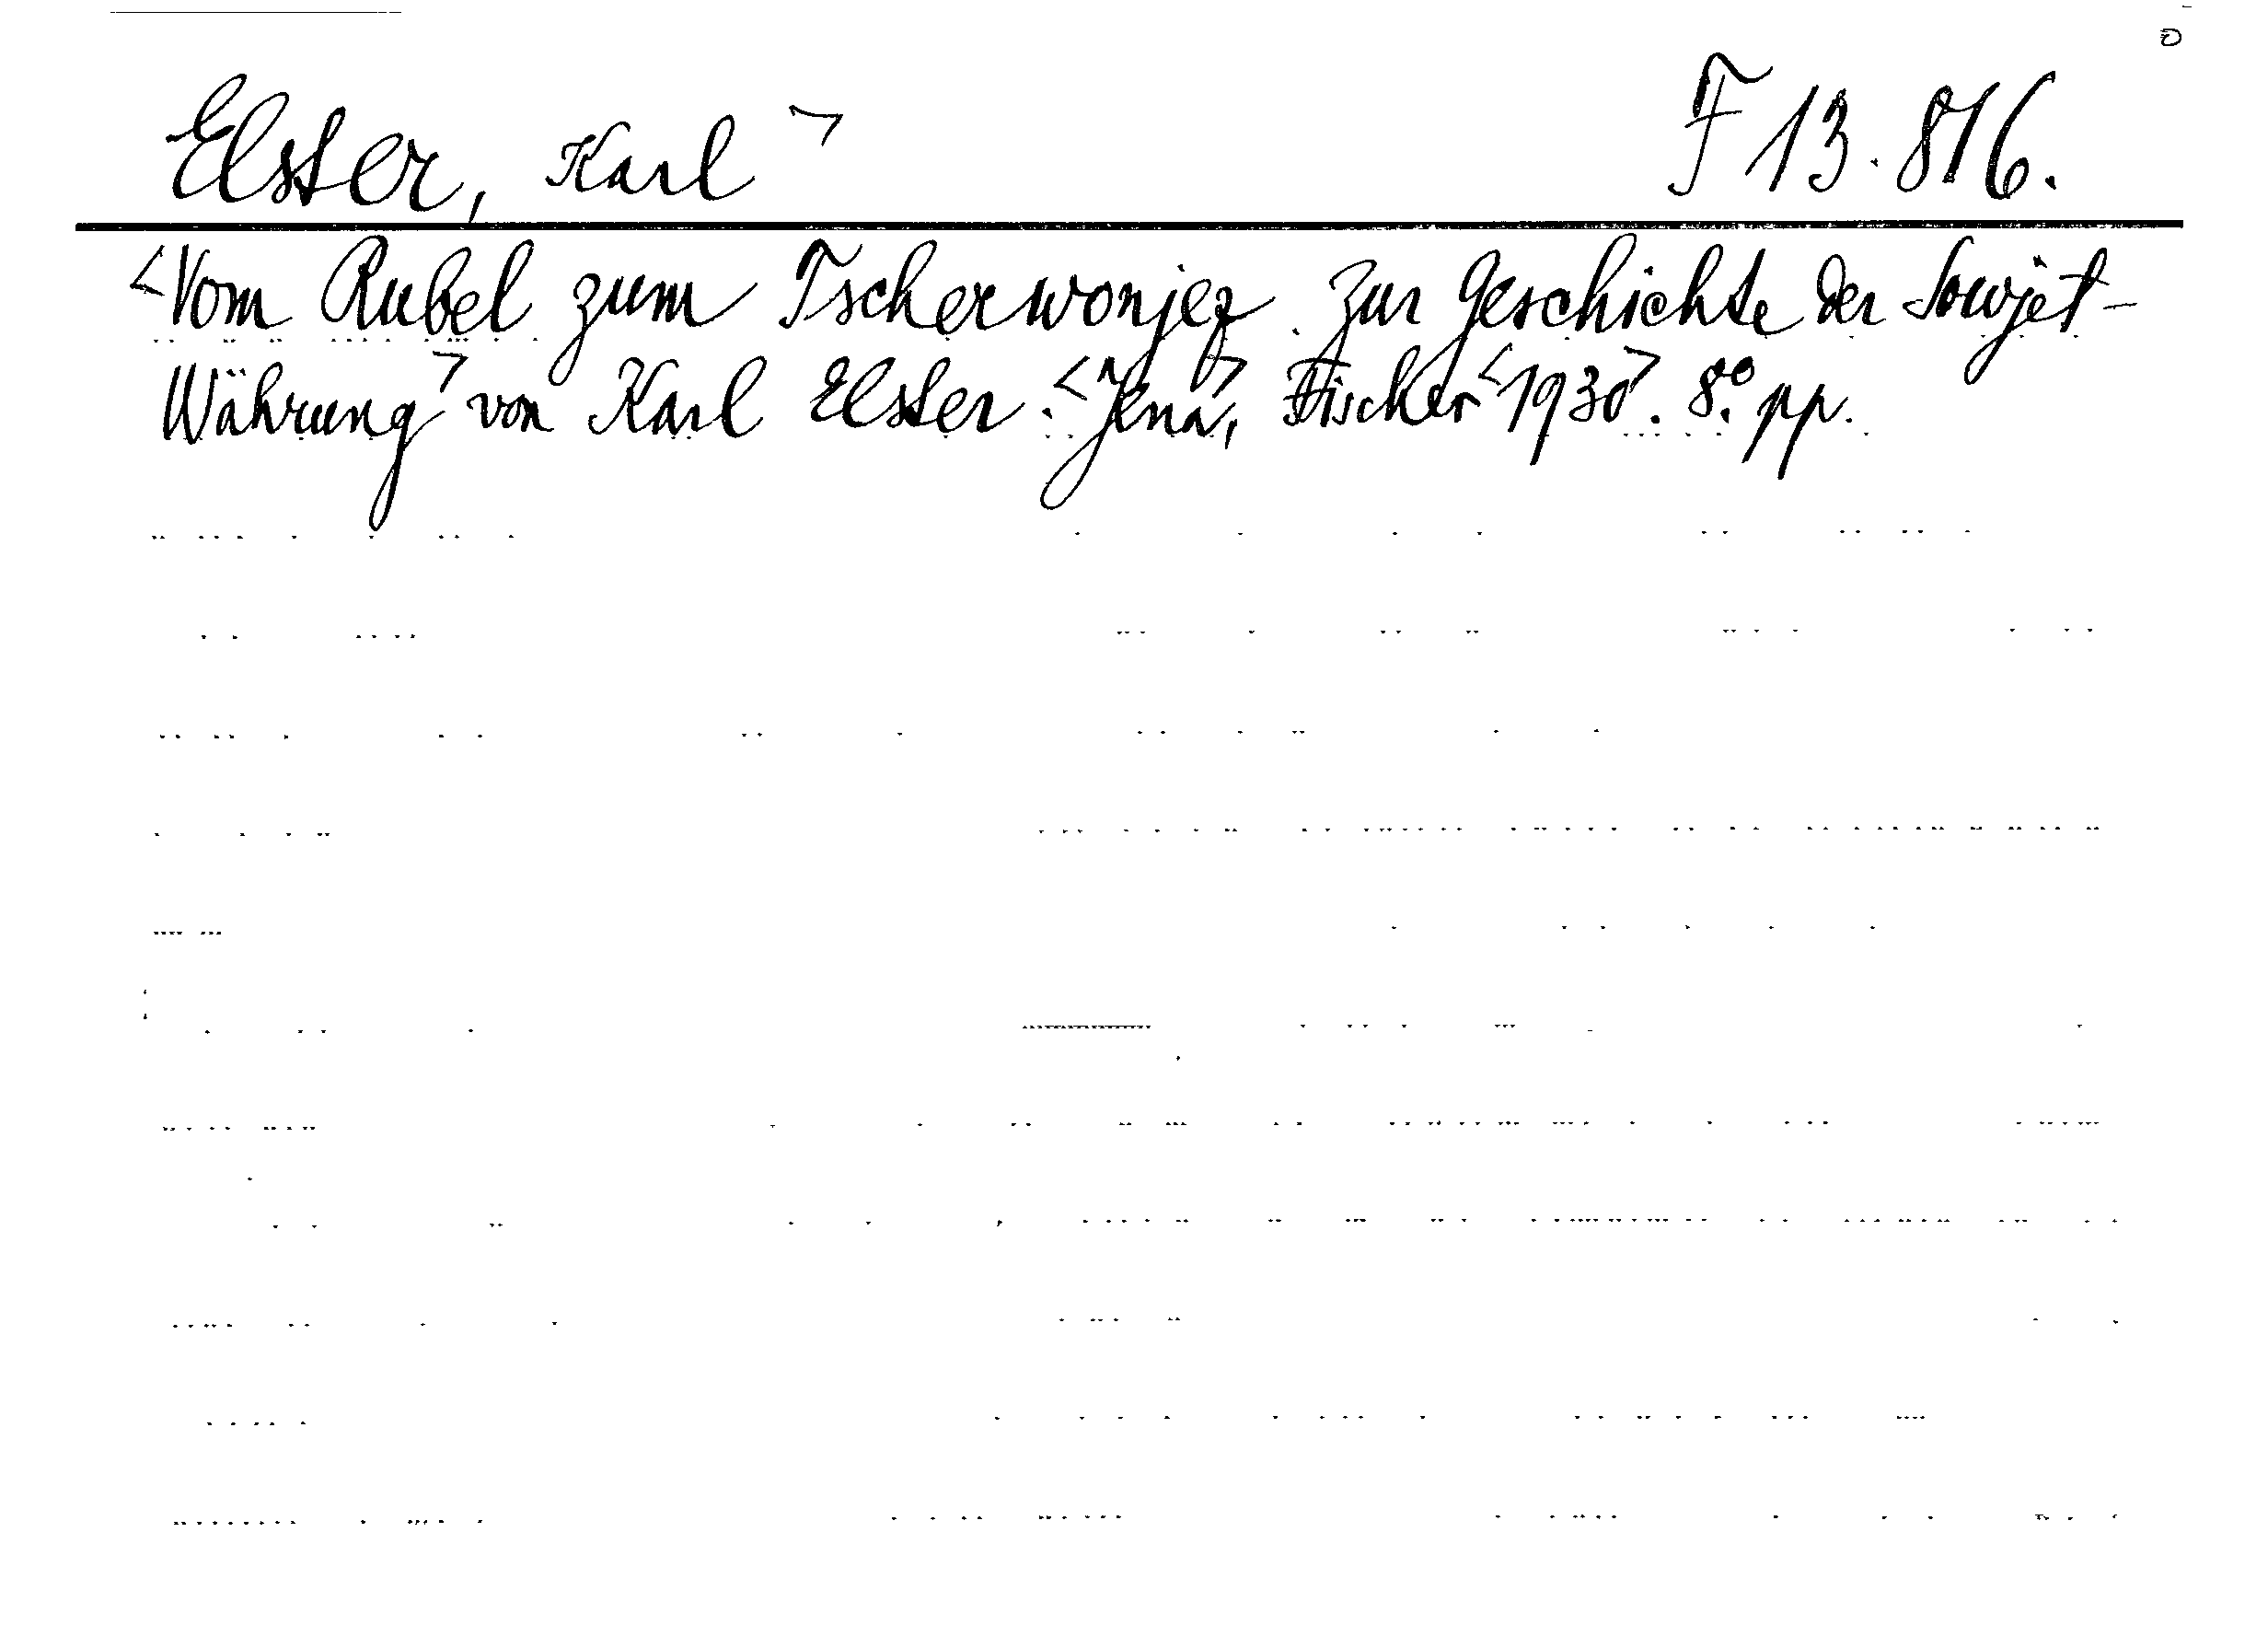 Elster, Karl > F 13.816.
<Vom Rubel zum Tscherwonjez. Zur Geschichte der Sowjet-
Währung> von Karl Elster. <Jena>, Fischer <1930>. 8° pp.